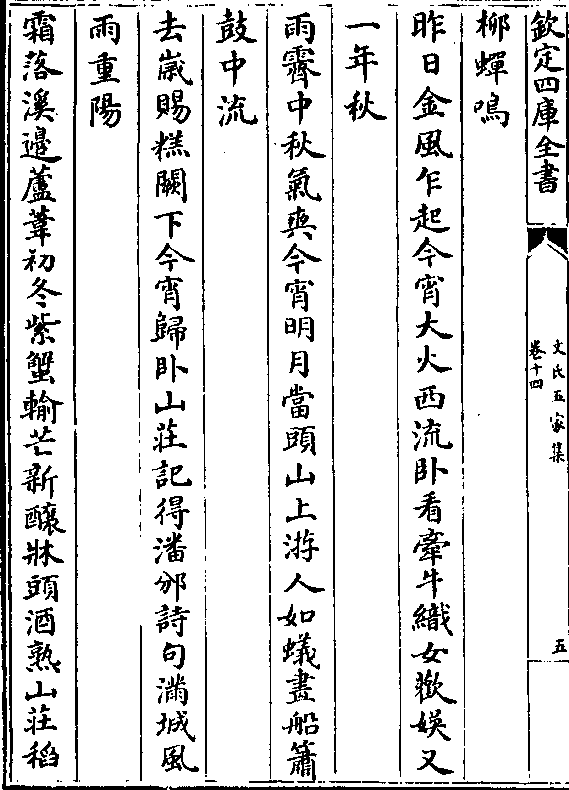 欽定四庫全書
文氏五家集
卷十四
五
柳蟬鳴
昨日金風乍起今宵大火西流卧看牽牛織女歡娛又
一年秋
雨霽中秋氣爽今宵明月當頭山上游人如蟻畫船簫
鼓中流
去歲賜糕闕下今宵歸卧山莊記得潘邠詩句滿城風
雨重陽
霜落溪邊蘆葦初冬紫蟹輸芒新釀牀頭酒熟山莊稻